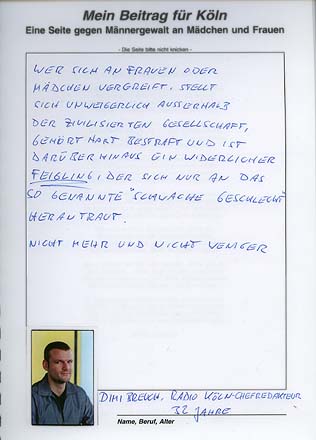 Mein Beitrag für Köln
Eine Seite gegen Männergewalt an Mädchen und Frauen
- Die Seite bitte nicht knicken -
WER SICH AN FRAUEN ODER
MÄDCHEN VERGREIFT, STELLT
SICH UNWEIGERLICH AUSSERHALB
DER ZIVILISIERTEN GESELLSCHAFT,
GEHÖRT HART BESTRAFT UND IST
DARÜBER HINAUS EIN WIDERLICHER
FEIGLING, DER SICH NUR AN DAS
SO GENANNTE "SCHWACHE GESCHLECHT"
HERANTRAUT.
NICHT MEHR UND NICHT WENIGER
DIMI BREUCH, RADIO KÖLN-CHEFREDAKTEUR
32 JAHRE
Name, Beruf, Alter